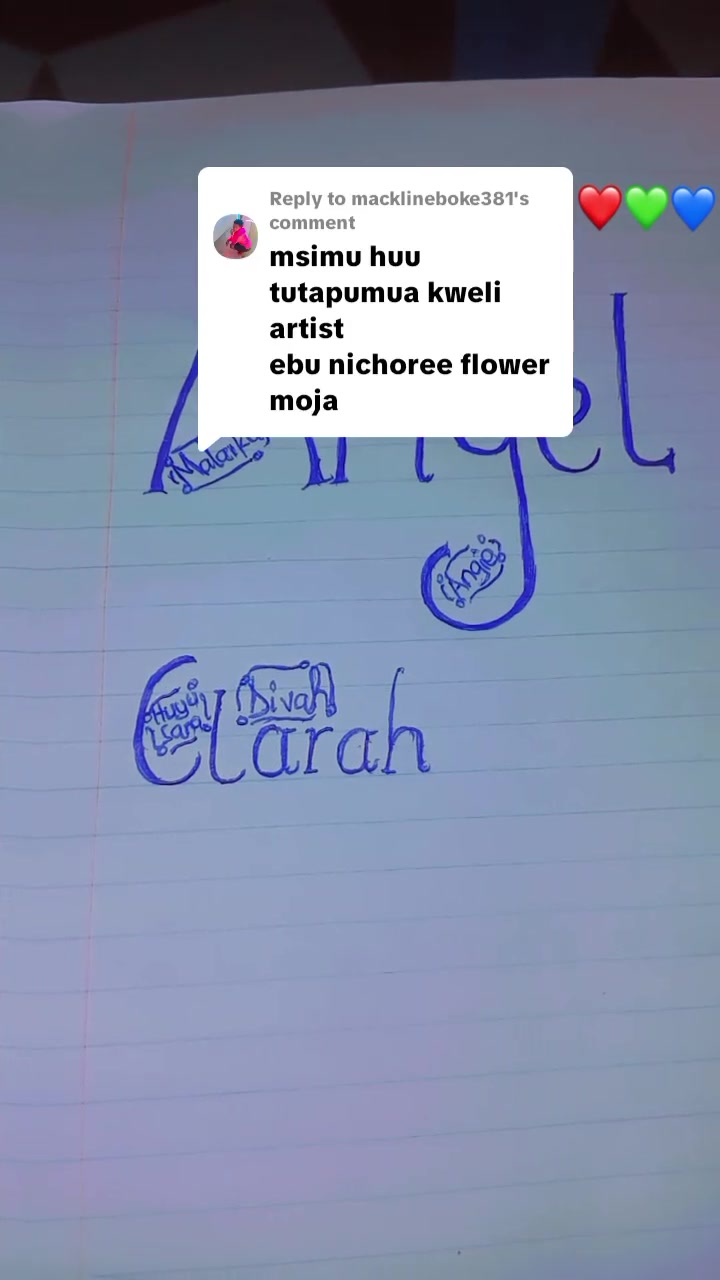 Reply to macklineboke381's
comment
msimu huu
tutapumua kweli
artist
ebu nichoree flower
moja
Angel
Angie
Divah
Huyu
Clarah